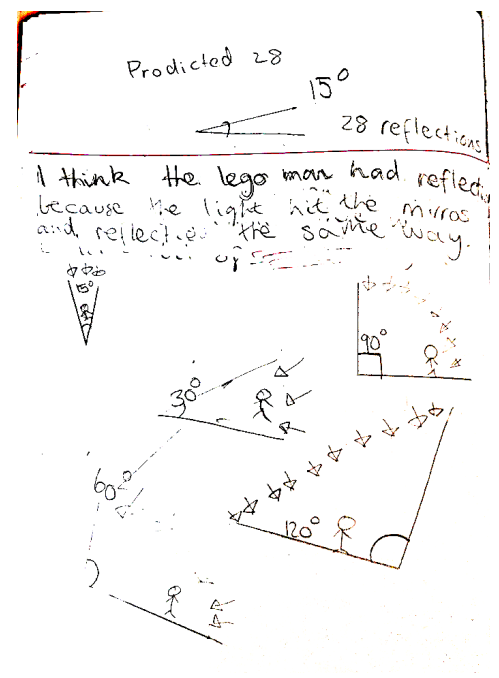 Prodicted 28
15°
28 reflections
I think the lego man had reflecti
because the light hit the mirros
and reflected the same way.
15°
90°
30°
60°
120°